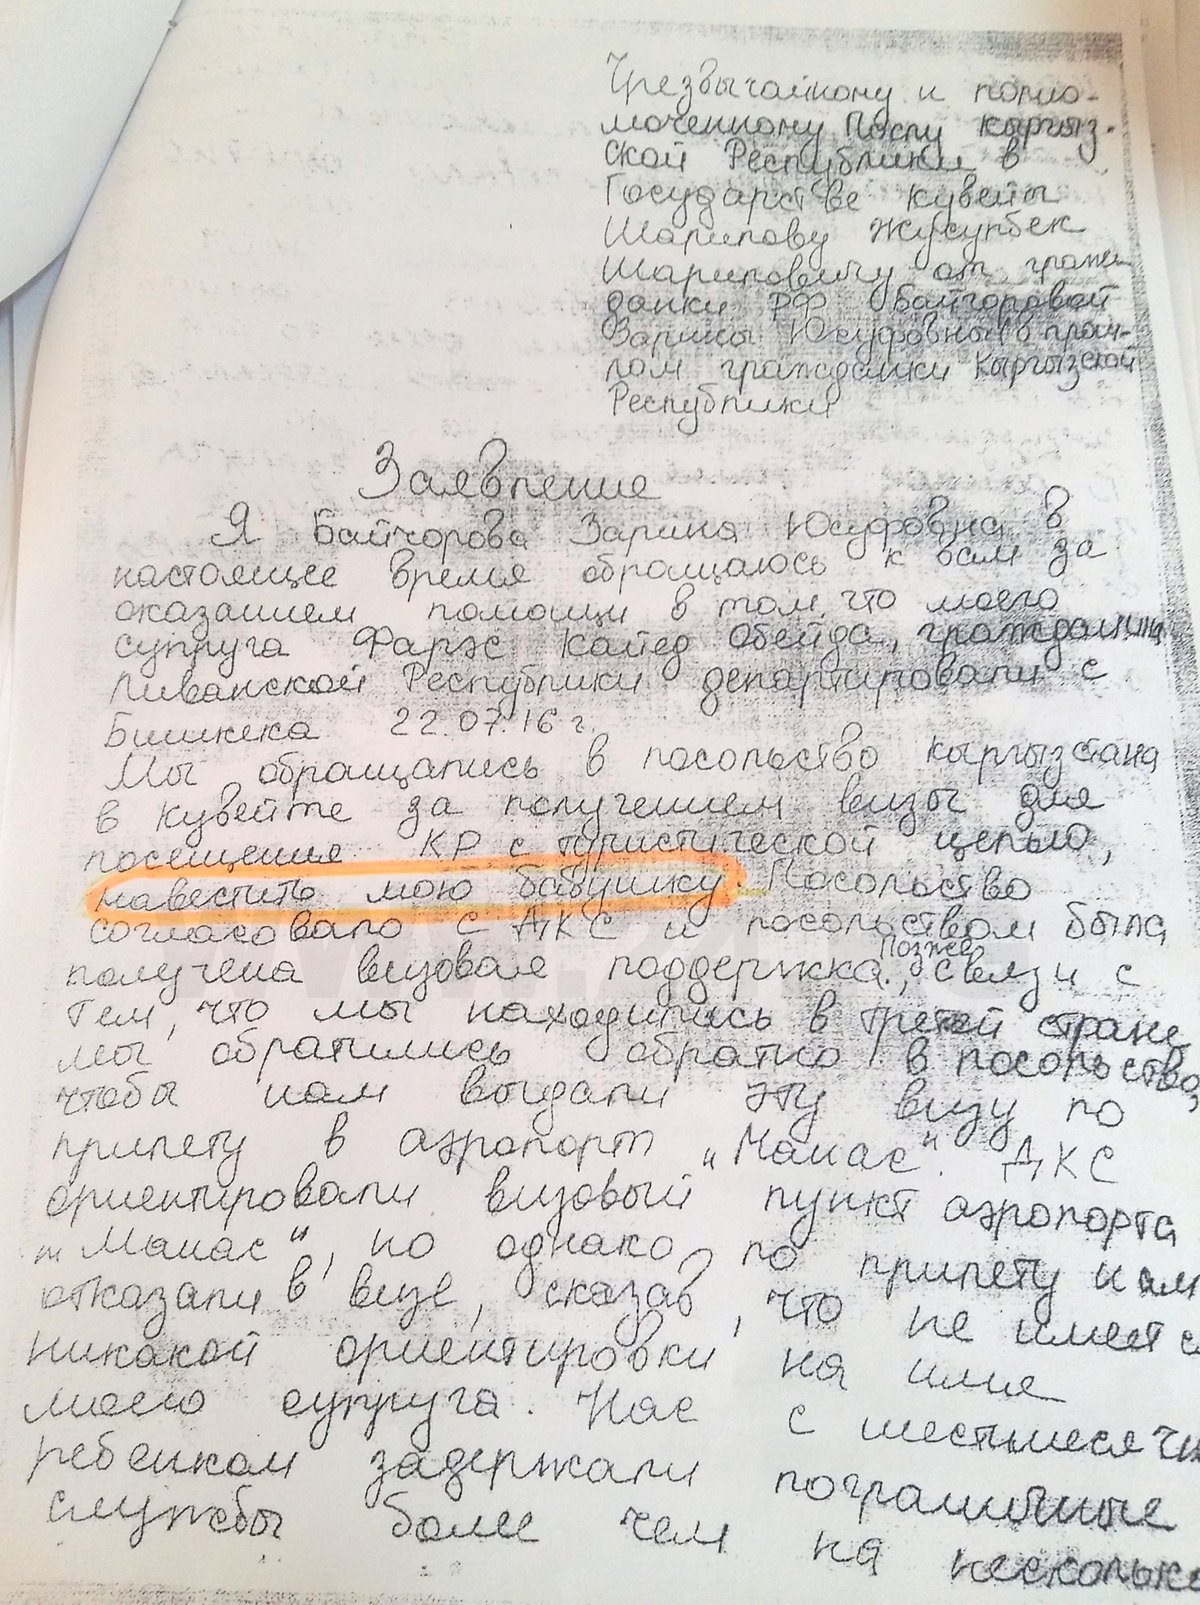 Чрезвычайному и полно-
моченному Послу Кыргыз-
ской Республики в
Государстве Кувейты
Шарипову Жусупбек
Шариповичу от граж
данки РФ Байчоровой
Зарины Юсуфовны в прош-
лом гражданки Кыргызской
Республики
Заявление
Я Байчорова Зарина Юсуфовна в
настоящее время обращаюсь к вам за
оказанием помощи в том, что моего
супруга Фарэс Кайед Обейда, гражданина
Ливанской Республики депортировали с
Бишкека 22.07.16 г.
Мы обращались в посольство Кыргызстана
в Кувейте за получением визы для
посещения КР с туристической целью,
навестить мою бабушку. Посольство
согласовало с ДКС и посольством была
получена визовая поддержка. Позже в связи с
тем, что мы находились в третей стране
мы обратились обратно в посольство,
чтобы нам выдали эту визу по
прилету в аэропорт „Манас". ДКС
ориентировали визовый пункт аэропорта
„Манас", но однако, по прилету нам
отказали в визе, сказав, что не имеется
никакой ориентировки на имя
моего супруга. Нас с шестимесячн
ребенком задержали пограничные
службы более чем на несколько